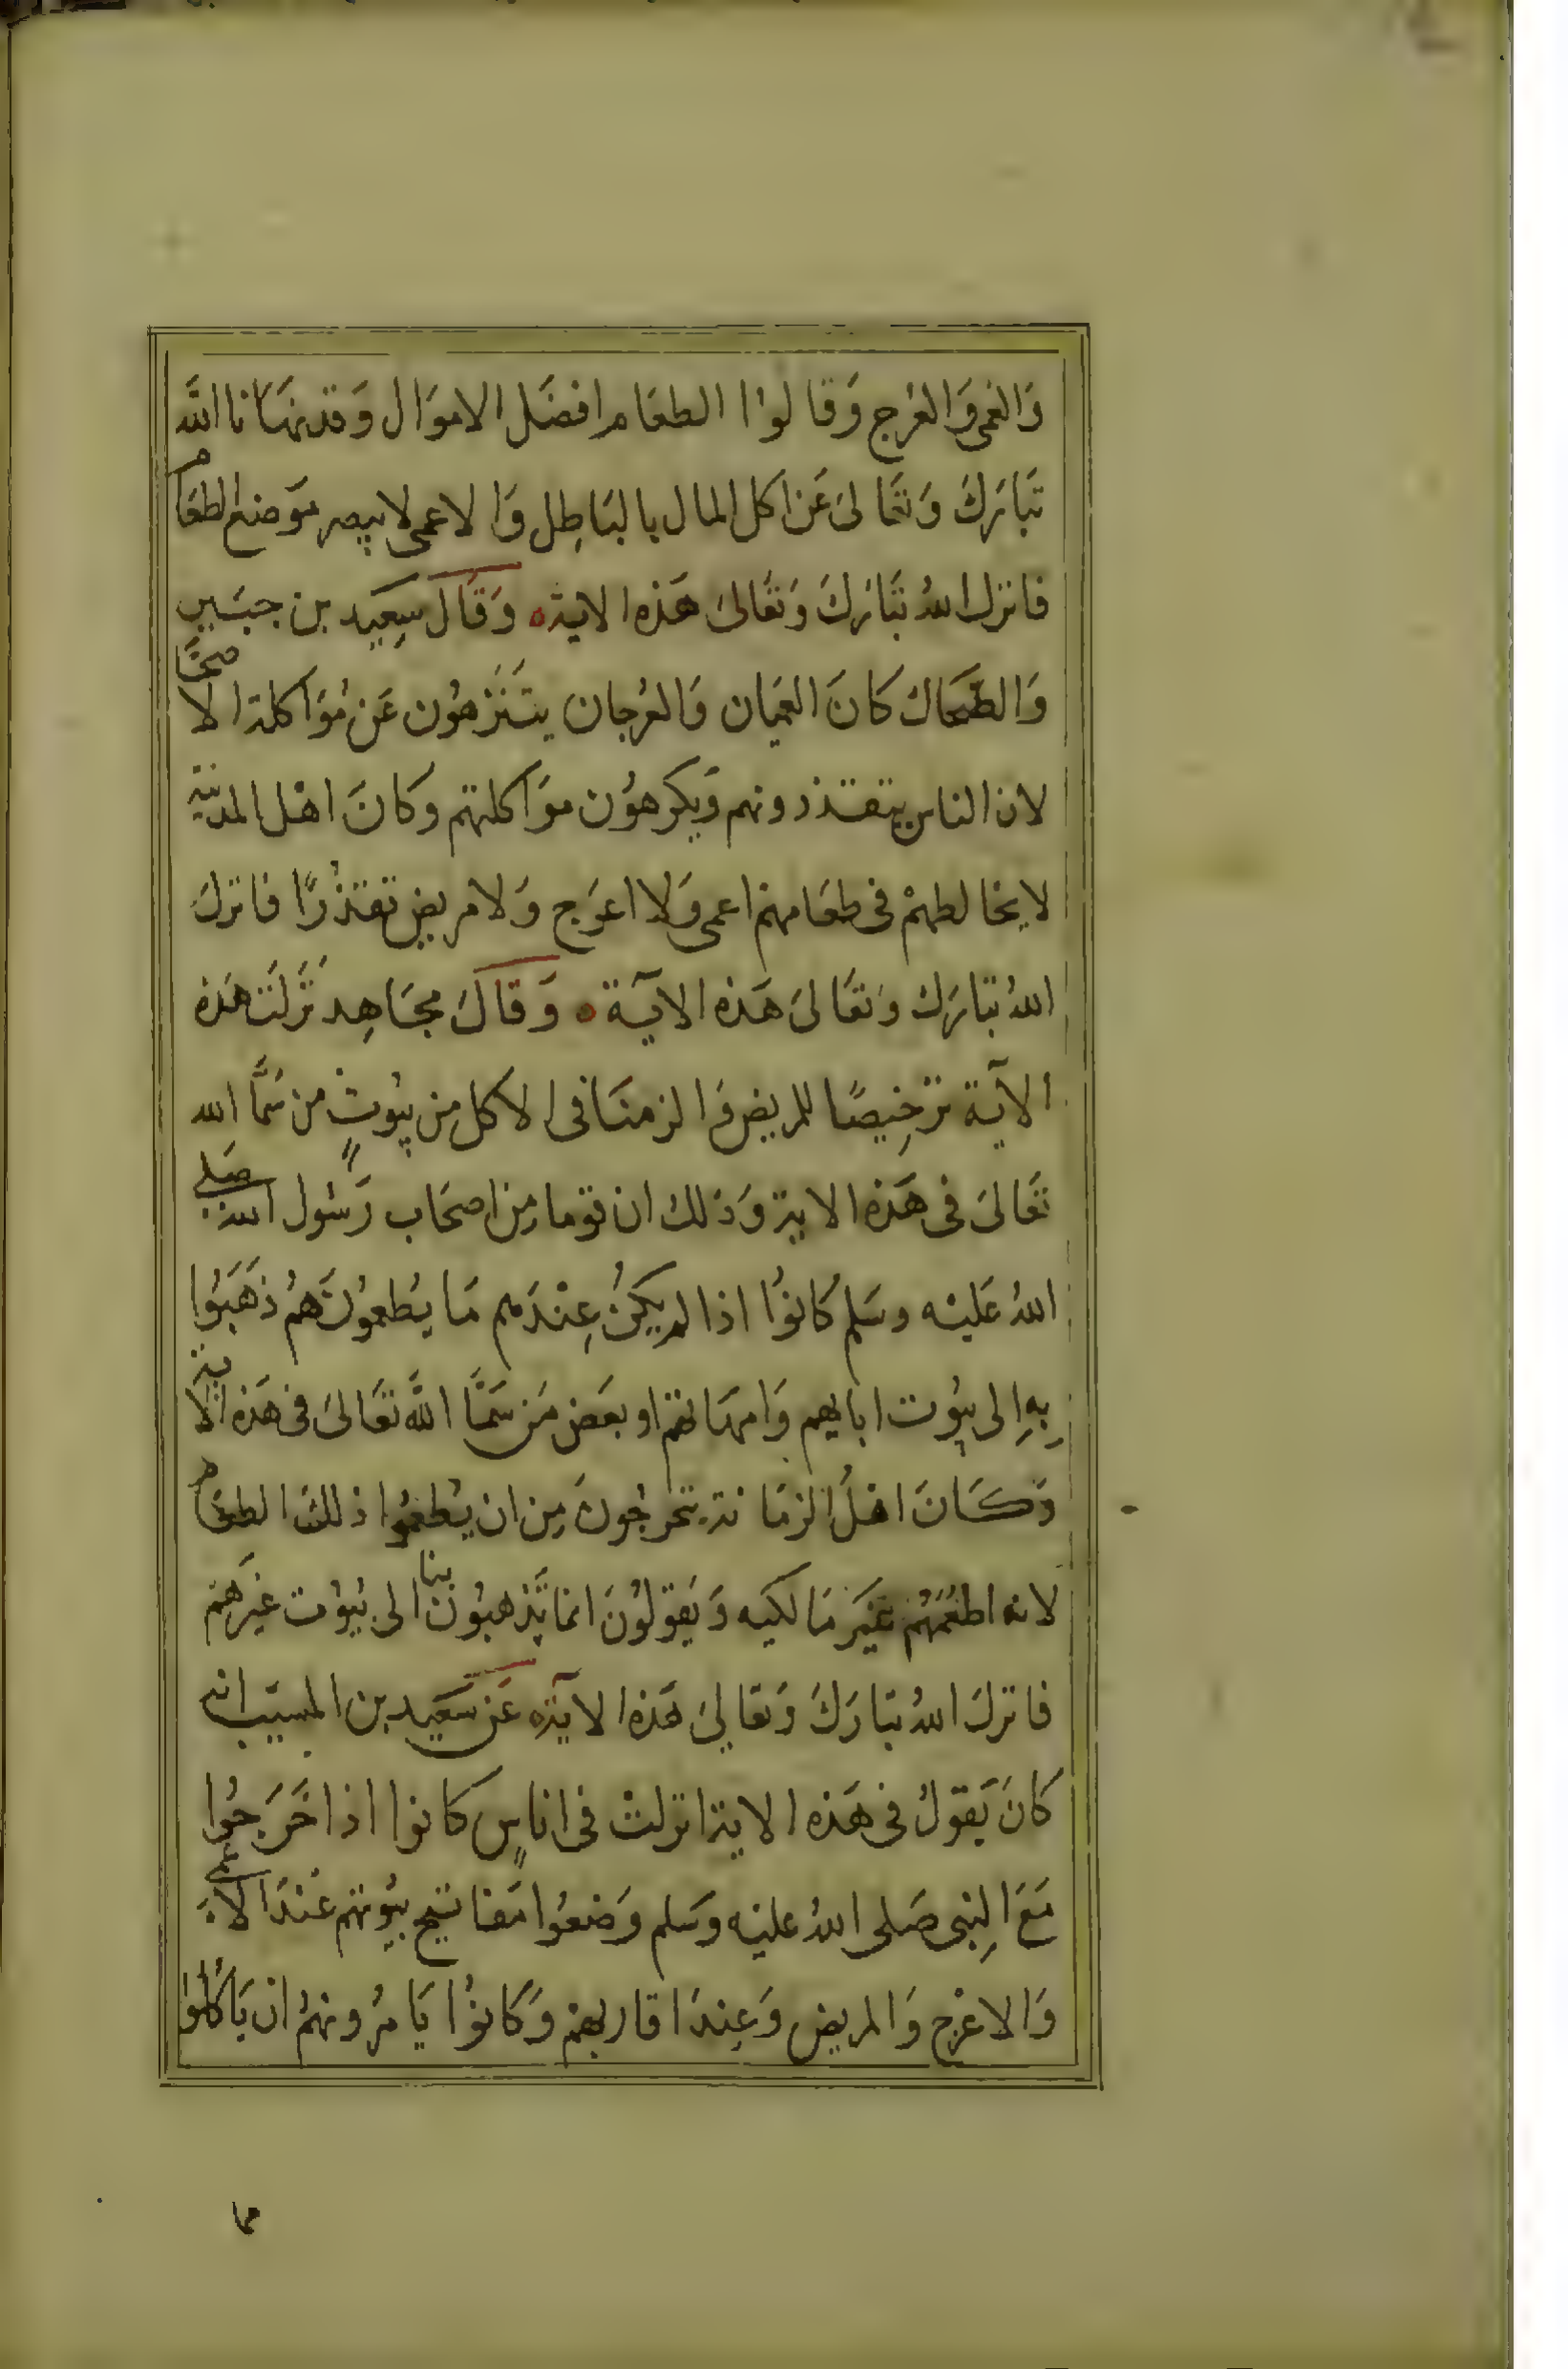 وَالعُمى وَالعُرْج وَقالوُا الطعَام افضَل الاموَال وَقد نهَانا اللَّه
تَبَارَكَ وَتعَالىَ عَن اكل المال بالبَاطِل وَالاعمى لا يبصر موَضع الطعَام
فانزل اللهُ تبَارَكَ وَتعَالىَ هَذه الاية ٥ وَقَالَ سعِيَد بن جبَير
وَالضَّحَاك كَانَ العميَان وَالعُرجان يتَنَزهُون عَن مُؤَاكلة الاصحَّا
لان الناس يتقذرونهم وَيكرهوُن موَاكلتهم وكانَ اهْل المدينة
لا يخالطهمْ فى طعَامهم اعمى وَلا اعرَج وَلا مريض تقذرًا فانزلَ
اللهُ تبارَك وَتعَالىَ هَذه الآية ٥ وَقالَ مجَاهِد نَزَلَت هَذه
الآية ترَخِيصًا للمريض وَالزمنَا فى الاكل مِن بيُوتٍ من سَمَّا الله
تعَالىَ فى هَذه الاية وَذلك ان قوما مِن اصحَاب رَسُول الله صَلى
اللهُ عَليْه وسَلم كَانوُا اذا لم يكنُ عِنْدَهم مَا يُطعموُنَهمُ ذهَبوُا
بِهِم الى بيُوت ابايهم وَامهَاتهم او بعَض مَن سَمَّا اللَّه تعَالىَ فى هَذه الاية
وَكَانَ اهْلُ الزمَانة يتحرجُونَ مِن ان يُطعمُوا ذلكَ الطعَام
لانه اطعَمَهُم غيَر مَالكيه وَيَقولوُنَ انما يَذهبوُن بنا الى بُيوُت غيَرهم
فانزلَ اللهُ تبَارَكَ وَتعَالىَ هَذه الآية ٥ عَن سَعَيد بن المسيَب انه
كانَ يَقولُ فى هَذه الاية انزلتْ فى اناسٍ كانوا اذا خَرَجُوا
مَعَ النِبى صَلى اللهُ عليْه وسَلم وَضعوُا مَفاتيح بيُوتهم عنْدَ الاعمى
وَالاعْرج وَالمريض وَعِندَ اقاربهم وَكَانوُا يَامرُونهمُ ان يَاكُلوُا
مما